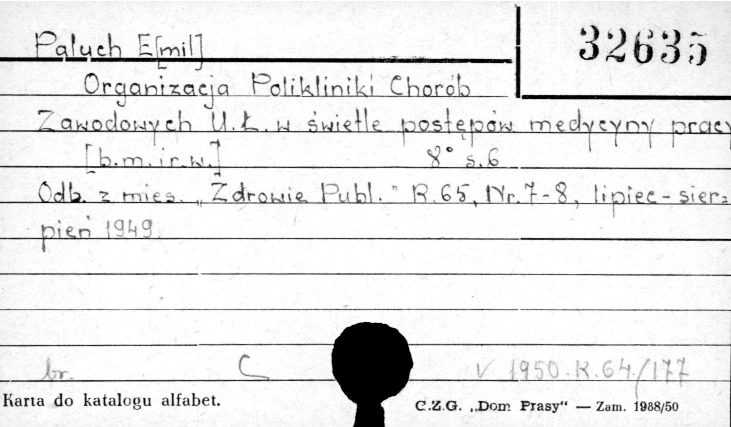 Paluch E[mil]
32635
Organizacja Polikliniki Chorób
Zawodowych U.Ł. w świetle postępów medycyny pracy
[b.m.i r.w.] 8° s.6
Odb. z mies. „Zdrowie Publ.” R.65, Nr.7-8, lipiec-sier=
pień 1949.
br. C V 1950.K.64./177
Karta do katalogu alfabet.
C.Z.G. „Dom Prasy“ — Zam. 1988/50